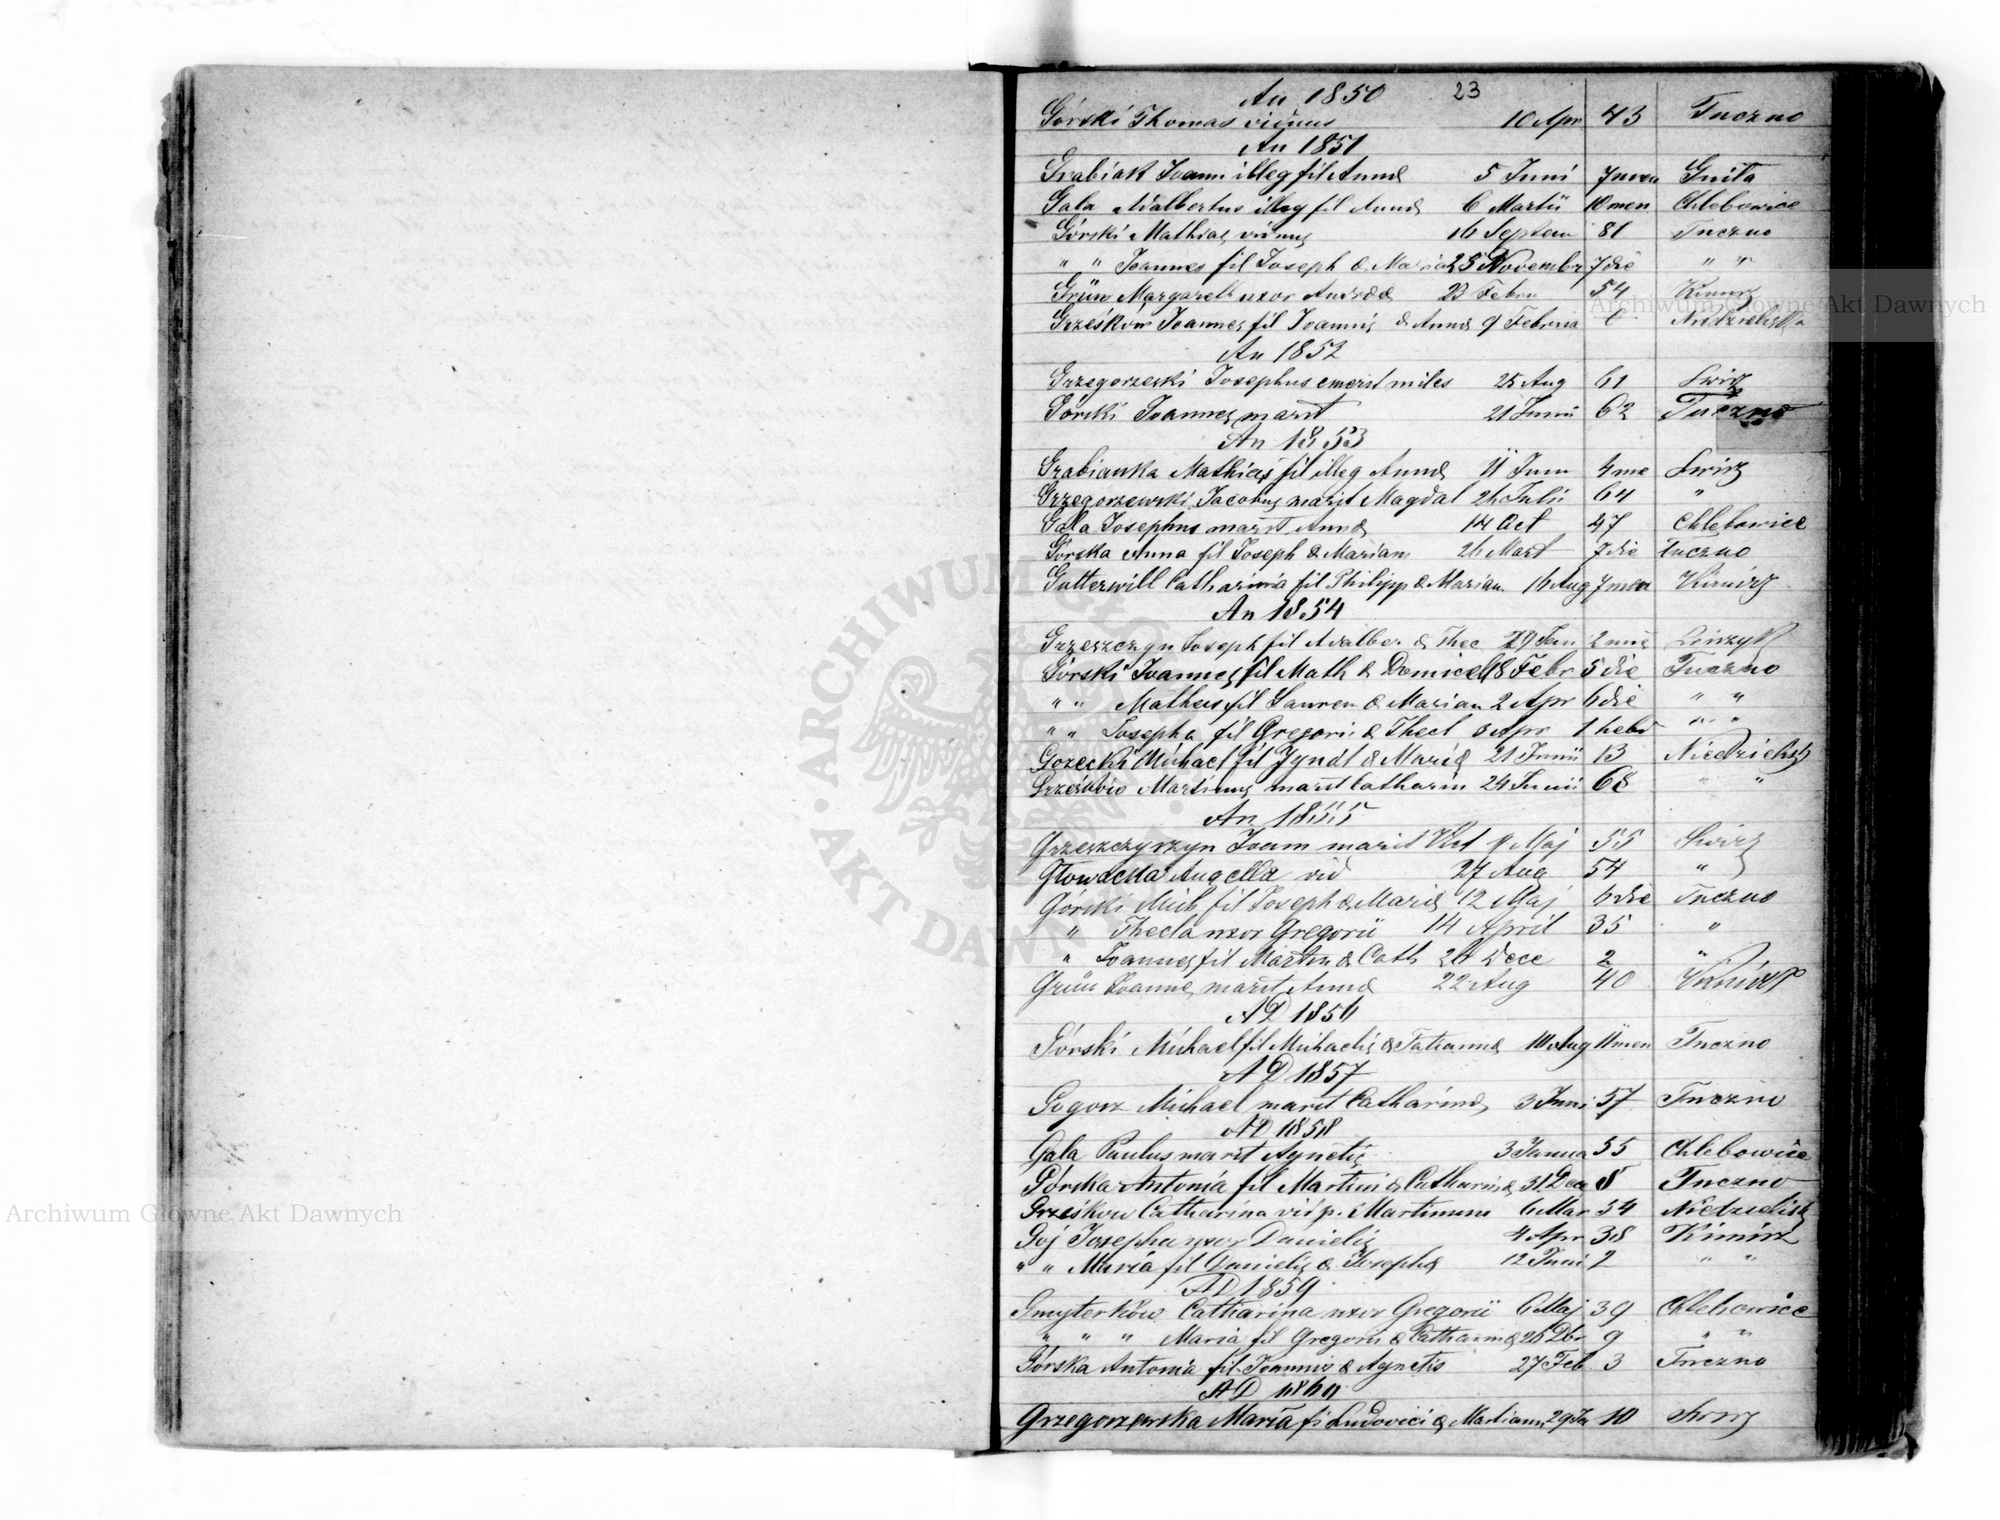 An 1850 23
Górski Thomas viduus 10 Apr 43 Tuczno
An 1851
Grabiak Joann illeg fil Annæ 5 Juni 7 men Gnita
Gala Adalbertus illeg fil Annæ 6 Martii 10 men Chlebowice
Górski Mathias viduus 16 Septem 81 Tuczno
" " Joannes fil Joseph & Maria 25 November 7 die " "
Grün Margareth uxor Andreæ 23 Febru 54
Grześków Joannes fil Joannis & Annæ 9 Februa
An 1852
Grzegorzeski Josephus emerit miles 25 Aug 61 Swirz
Górski Joannes marit 21 Junii 62 Tuczno
An 1853
Grabianka Mathias fil illeg Annæ 11 Juni 4 me Swirz
Grzegorzewski Jacobus marit Magdal 26 Julii 64 "
Gala Josephus marit Annæ 14 Oct 47 Chlebowice
Górska Anna fil Joseph & Mariann 26 Mart 7 die Tuczno
Gutterwill Catharina fil Philipp & Mariann 16 Aug 7 men Kimirz
An 1854
Grzeszczyn Joseph fil Adalber & Thec 29 Jan 2
Górski Joannes fil Math & Domicel 18 Febr 5 die Tuczno
" " Matheus fil Lauren & Marian 2 Apr 6 die " "
" " Josepha fil Gregorii & Thecl 3 Apr 1 hebd " "
Gozecki Michael fil & Mariæ 21 Junii 13 Niedzielisk
Grześków Martinus marit Catharin 24 Junii 68 " "
An 1855
Grzeszczyszyn Joann marit Maj 55 Swirz
Głowacka Angella vid 27 Aug 54 "
Górski Mich fil Joseph & Mariæ 12 Maj 6 die Tuczno
" Thecla uxor Gregorii 14 April 35 "
" Joannes fil Martin & Cath 26 Dece 2 "
Grün Joannes marit Annæ 22 Aug 40
AD 1856
Górski Michael fil Michaelis & Tatiannæ 10 Aug 11 men Tuczno
AD 1857
Gogosz Michael marit Catharinæ 3 Juni 57 Tuczno
AD 1858
Gala Paulus marit Agnetis 3 Janua 55 Chlebowice
Górska Antonia fil Martini & Catharinæ 31 Dec 8 Tuczno
Grześkow Catharina vid p. Martinum 6 Mar 54 Niedzielisk
Goj Josepha uxor Danielis 4 Apr 38 Kimirz
" " Maria fil Danielis & Josephæ 12 Juni 2 " "
AD 1859
Gmyterków Catharina uxor Gregorii 6 Maj 39 Chlebowice
" " " Maria fil Gregorii & Catharinæ 26 Dbr 9 " "
Górska Antonia fil Joannis & Agnetis 27 Feb 3 Tuczno
AD 1860
Grzegorzewska Maria fi Ludovici & Mariann 29 Ja 10 Swirz
ARCHIWUM GŁÓWNE AKT DAWNYCH
Archiwum Główne Akt Dawnych
Archiwum Główne Akt Dawnych